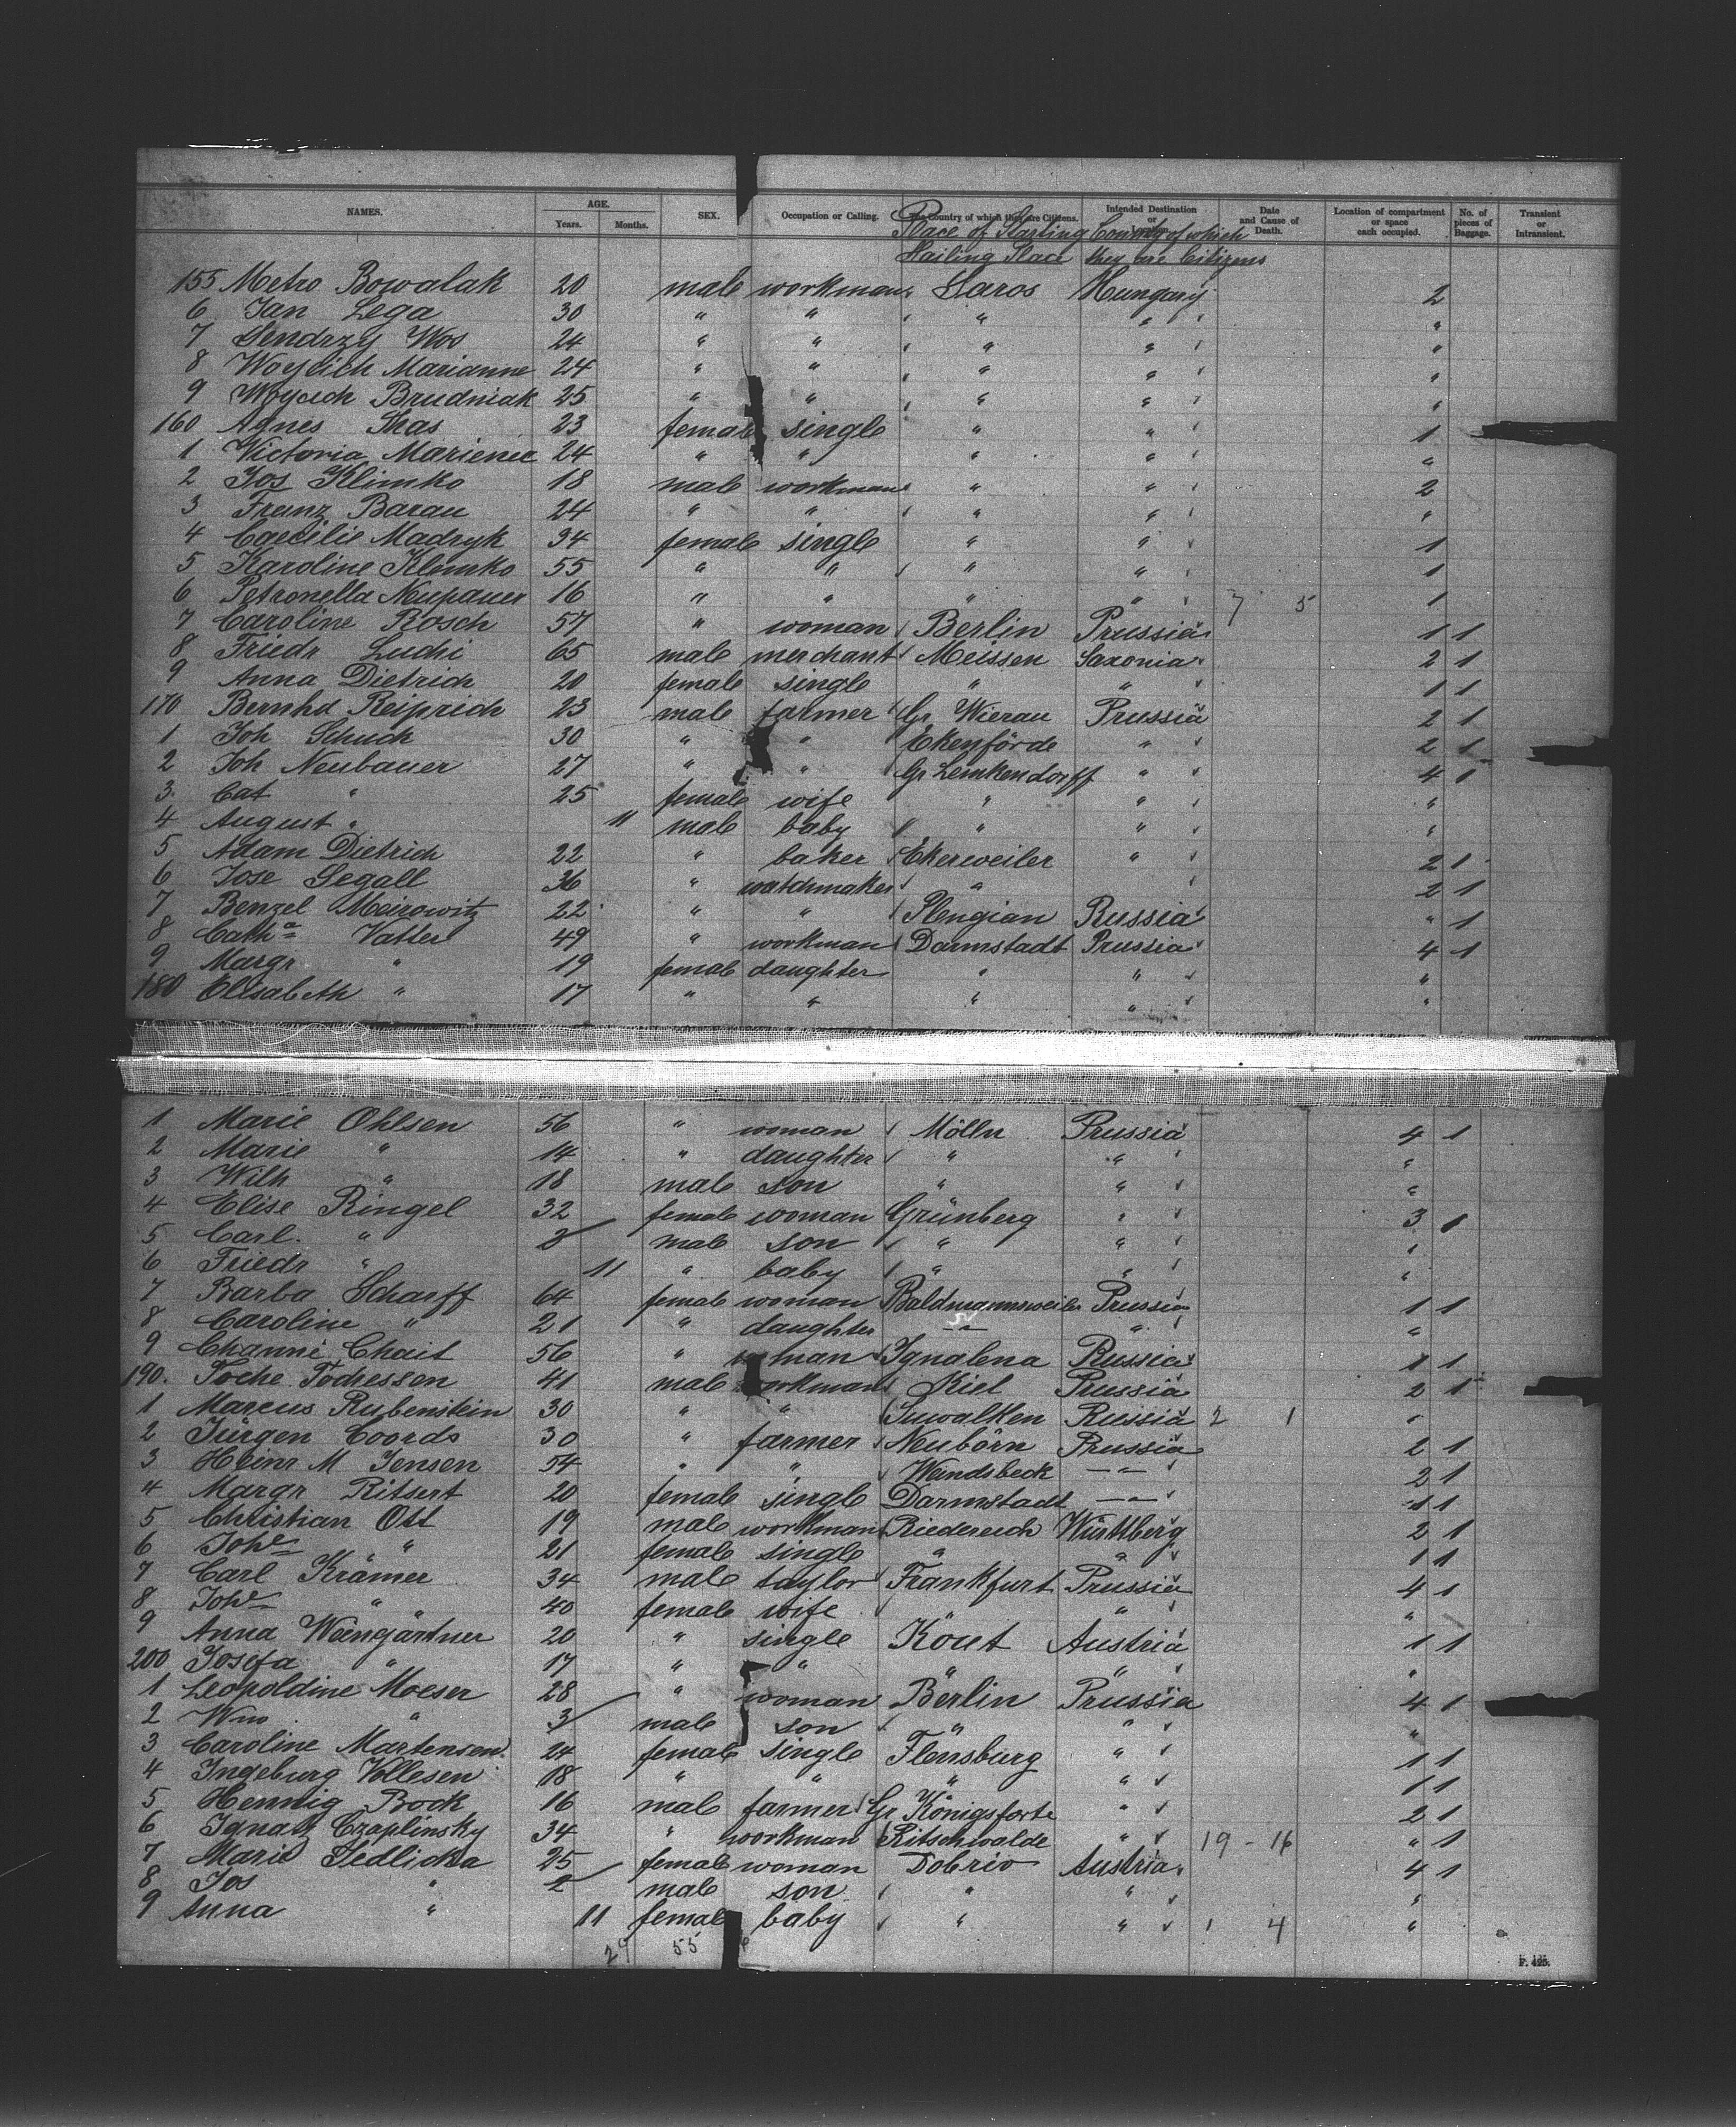 NAMES. AGE. Years. Months. SEX. Occupation or Calling. The Country of which they are Citizens. Intended Destination or Date and Cause of Death. Location of compartment or space each occupied. No. of pieces of Baggage. Transient or Intransient.
Place of Starting Country of which
Hailing Place they are Citizens
155 Metro Bowalak 20 male workman Saros Hungary 2
6 Jan Lega 30 " " " " "
7 Sendrzy Wos 24 " " " " "
8 Woycich Marianne 24 " " " " "
9 Woycich Brudniak 25 " " " " "
160 Agnes Thas 23 female single " " 1
1 Victoria 24 " " " " "
2 Jos Klimko 18 male workman " " 2
3 Franz Baran 24 " " " " "
4 Caecilie Madryk 34 female single " " 1
5 Karoline Klemko 55 " " " " 1
6 Petronella Neupauer 16 " " " " 7 5 1
7 Caroline Rosch 57 " woman Berlin Prussia 1 1
8 Friedr Luchi 65 male merchant Meissen Saxonia 2 1
9 Anna Dietrich 20 female single " " 1 1
170 Bernhd Reiprich 23 male farmer Gr Wierau Prussia 2 1
1 Joh Schuch 30 " " Ekenförde " 2 1
2 Joh Neubauer 27 " " Gr Lemkendorff " 4 1
3 Cat " 25 female wife " " "
4 August " 11 male baby " " "
5 Adam Dietrich 22 " baker Ekerweiler " 2 1
6 Jose Segall 36 " watchmaker " 2 1
7 Benzel Meirowitz 22 " " Plengian Russia " 1
8 Catha Vatter 49 " workman Darmstadt Prussia 4 1
9 Margr " 19 female daughter " " "
180 Elisabeth " 17 " " " " "
1 Marie Ohlsen 56 " woman Mölln Prussia 4 1
2 Marie " 14 " daughter " " "
3 Wilh " 18 male son " " "
4 Elise Ringel 32 female woman Grünberg " 3 1
5 Carl " 2 male son " " "
6 Friedr " 11 " baby " " "
7 Barba Scharff 64 female woman Baldmannsweiler Prussia 1 1
8 Caroline " 21 " daughter -"- " "
9 Channe Chait 56 " woman Ignalena Russia 1 1
190. Toche Tochessen 41 male workman Kiel Prussia 2 1
1 Marcus Rubenstein 30 " " Suwalken Russia 2 1 "
2 Jürgen Coords 30 " farmer Neubörn Prussia 2 1
3 Heinr M Jensen 54 " " Wandsbeck -"- 2 1
4 Margr Ritsert 20 female single Darmstadt -"- 1 1
5 Christian Ott 19 male workman Riedereich Württberg 2 1
6 Johe " 21 female single " " 1 1
7 Carl Krämer 34 male taylor Frankfurt Prussia 4 1
8 Johe " 40 female wife " " "
9 Anna Weingärtner 20 " single Kout Austria 1 1
200 Josefa " 17 " " " " "
1 Leopoldine Moeser 28 " woman Berlin Prussia 4 1
2 Wm " 3 male son " " "
3 Caroline Martensen 24 female single Flensburg " 1 1
4 Ingeburg Vollesen 18 " " " " 1 1
5 Hennig Bock 16 male farmer Gr Königsforte " 2 1
6 Ignatz Czaplinsky 34 " workman Ritschwalde " 19 - 16 " 1
7 Marie Sedlicka 25 female woman Dobriv Austria 4 1
8 Jos " 2 male son " " "
9 Anna " 11 female baby " " 1 4 "
29 55